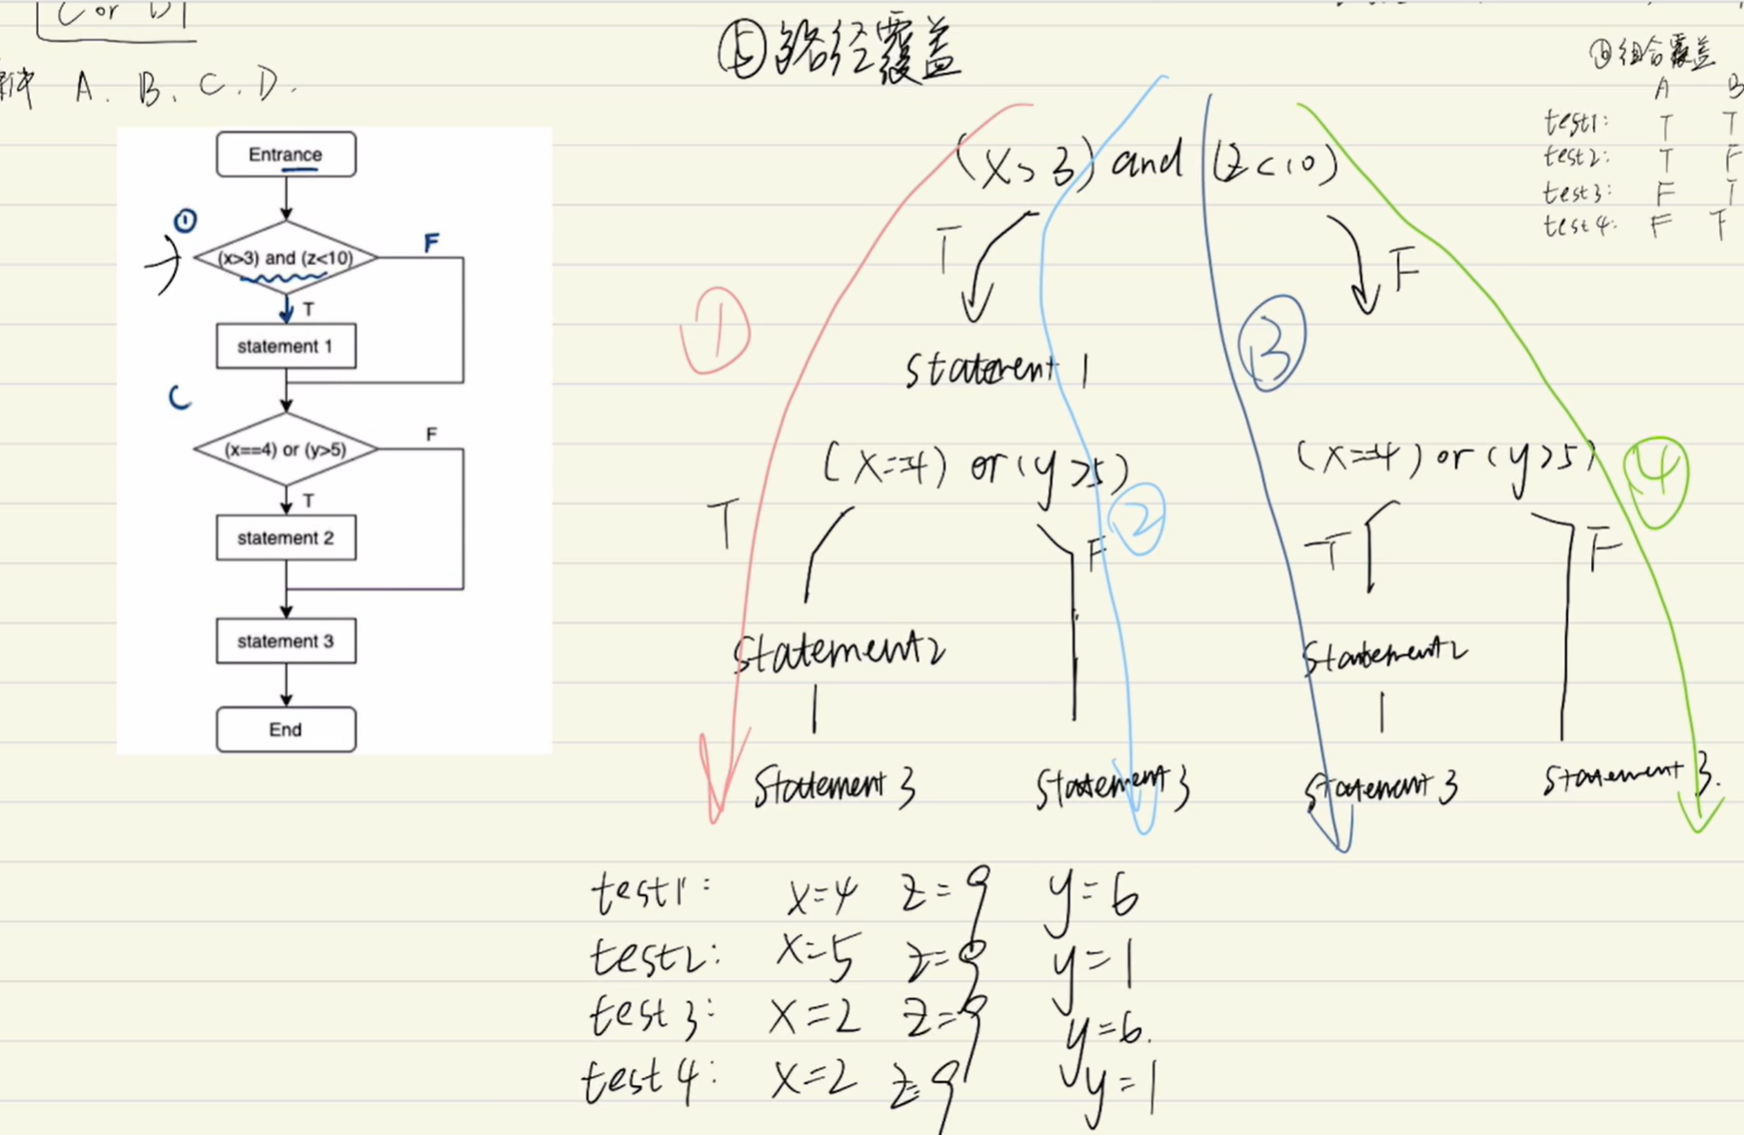 C or D
A. B. C. D.
⑤路径覆盖
组合覆盖
A B
test1: T T
test2: T F
test3: F T
test4: F F
Entrance
①
(x>3) and (z<10)
F
T
statement 1
C
(x==4) or (y>5)
F
T
statement 2
statement 3
End
(x>3) and (z<10)
T
F
①
②
③
④
statement 1
(x==4) or (y>5)
(x==4) or (y>5)
T
F
T
F
Statement2
Statement2
Statement 3
Statement 3
Statement 3
Statement 3.
test1: x=4 z=9 y=6
test2: x=5 z=9 y=1
test3: x=2 z=9 y=6.
test4: x=2 z=9 y=1